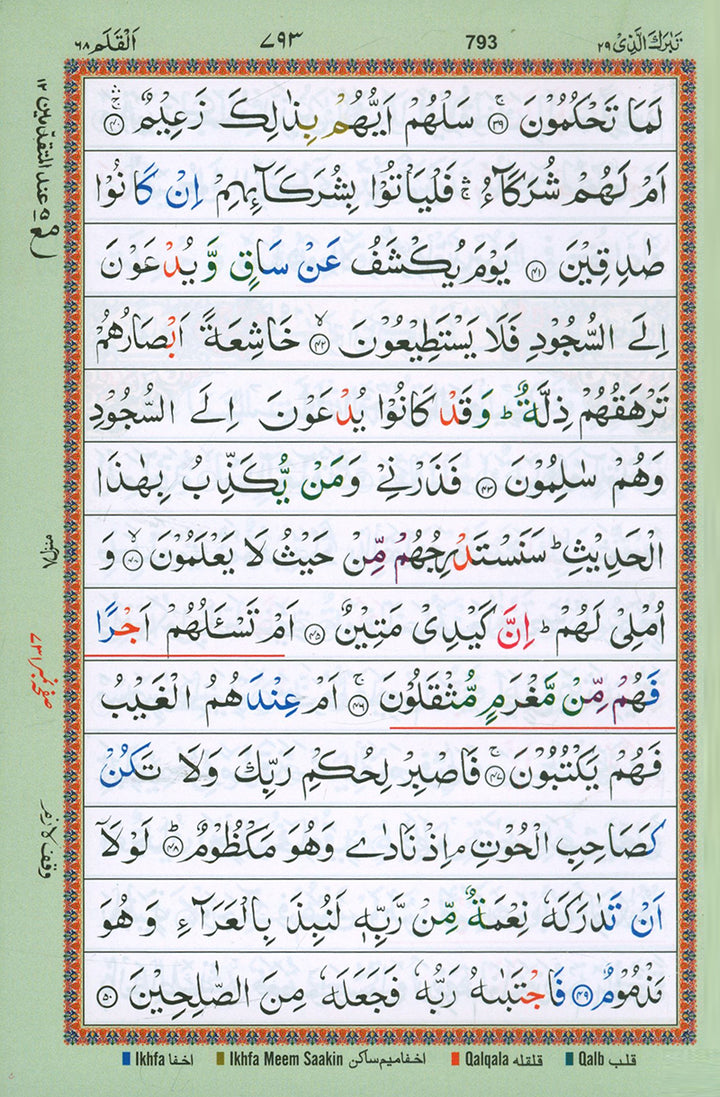 تبٰرك الذی ۲۹ 793 ۷۹۳ اَلْقَلَم ۶۸
لَمَا تَحْكُمُوْنَ ۳۹ ۚ سَلْهُمْ اَیُّهُمْ بِذٰلِكَ زَعِیْمٌ ۴۰ ۚۛ
اَمْ لَهُمْ شُرَكَآءُ ۚۛ فَلْیَاْتُوْا بِشُرَكَآىِٕهِمْ اِنْ كَانُوْا
صٰدِقِیْنَ ۴۱ یَوْمَ یُكْشَفُ عَنْ سَاقٍ وَّ یُدْعَوْنَ
اِلَی السُّجُوْدِ فَلَا یَسْتَطِیْعُوْنَ ۴۲ ۙ خَاشِعَةً اَبْصَارُهُمْ
تَرْهَقُهُمْ ذِلَّةٌ ؕ وَقَدْ كَانُوْا یُدْعَوْنَ اِلَی السُّجُوْدِ
وَهُمْ سٰلِمُوْنَ ۴۳ فَذَرْنِیْ وَمَنْ یُّكَذِّبُ بِهٰذَا
الْحَدِیْثِ ؕ سَنَسْتَدْرِجُهُمْ مِّنْ حَیْثُ لَا یَعْلَمُوْنَ ۴۴ ۙ وَ
اُمْلِیْ لَهُمْ ؕ اِنَّ كَیْدِیْ مَتِیْنٌ ۴۵ اَمْ تَسْـَٔلُهُمْ اَجْرًا
فَهُمْ مِّنْ مَّغْرَمٍ مُّثْقَلُوْنَ ۴۶ ۚ اَمْ عِنْدَهُمُ الْغَیْبُ
فَهُمْ یَكْتُبُوْنَ ۴۷ فَاصْبِرْ لِحُكْمِ رَبِّكَ وَلَا تَكُنْ
كَصَاحِبِ الْحُوْتِ ۘ اِذْ نَادٰی وَهُوَ مَكْظُوْمٌ ۴۸ ؕ لَوْلَاۤ
اَنْ تَدٰرَكَهٗ نِعْمَةٌ مِّنْ رَّبِّهٖ لَنُبِذَ بِالْعَرَآءِ وَ هُوَ
مَذْمُوْمٌ ۴۹ فَاجْتَبٰىهُ رَبُّهٗ فَجَعَلَهٗ مِنَ الصّٰلِحِیْنَ ۵۰
عند المتقدمین ۱۲
وقف لازم
Ikhfa اخفا Ikhfa Meem Saakin اخفا میم ساکن Qalqala قلقله Qalb قلب